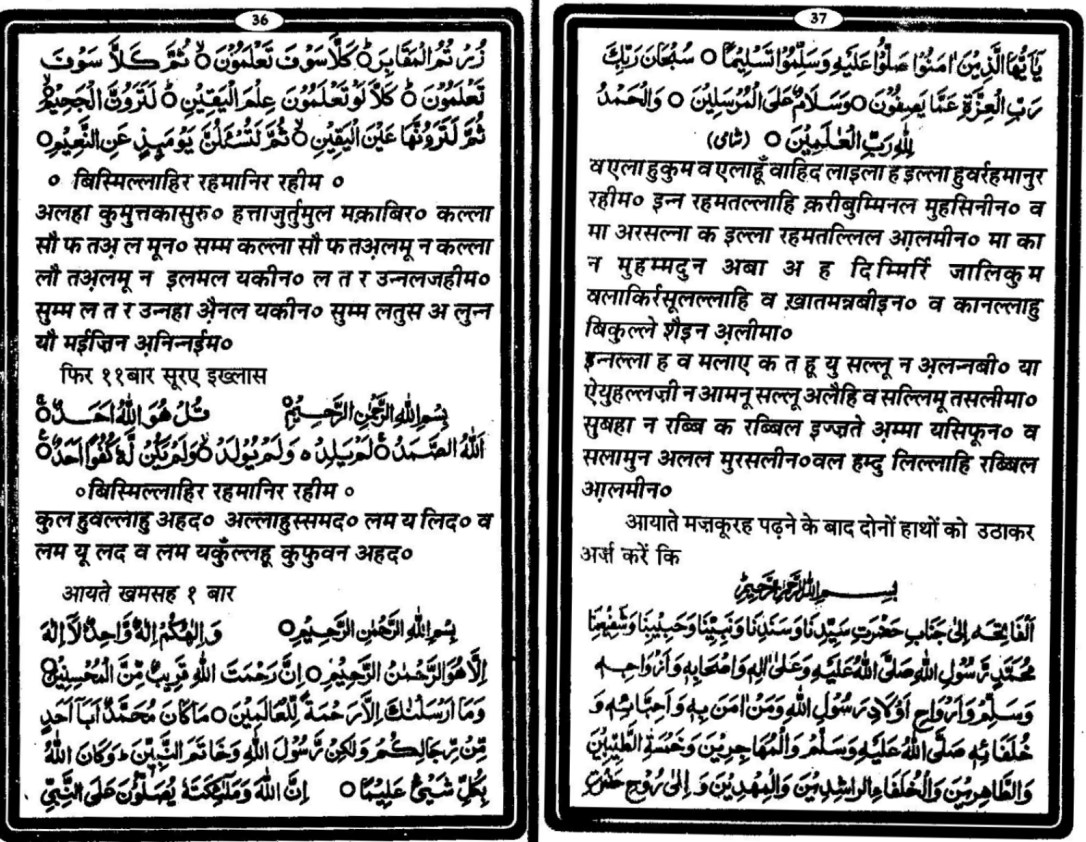 36
زُرْتُمُ الْمَقَابِرَ ۝ كَلَّا سَوْفَ تَعْلَمُوْنَ ۝ ثُمَّ كَلَّا سَوْفَ
تَعْلَمُوْنَ ۝ كَلَّا لَوْ تَعْلَمُوْنَ عِلْمَ الْيَقِيْنِ ۝ لَتَرَوُنَّ الْجَحِيْمَ
ثُمَّ لَتَرَوُنَّهَا عَيْنَ الْيَقِيْنِ ۝ ثُمَّ لَتُسْئَلُنَّ يَوْمَئِذٍ عَنِ النَّعِيْمِ ۝
० बिस्मिल्लाहिर रहमानिर रहीम ०
अलहा कुमुत्तकासुरु० हत्ताजुर्तुमुल मक़ाबिर० कल्ला
सौ फ तअ़ ल मून० सम्म कल्ला सौ फ तअ़लमू न कल्ला
लौ तअ़लमू न इलमल यकीन० ल त र उन्नलजहीम०
सुम्म ल त र उन्नहा अ़ैनल यकीन० सुम्म लतुस अ लुन्न
यौ मईज़िन अ़निन्नईम०
फिर ११बार सूरए इख्लास
بِسْمِ اللهِ الرَّحْمٰنِ الرَّحِيْمِ ۝ قُلْ هُوَ اللهُ اَحَدٌ ۝
اَللهُ الصَّمَدُ ۝ لَمْ يَلِدْ ۝ وَلَمْ يُوْلَدْ ۝ وَلَمْ يَكُنْ لَّهٗ كُفُوًا اَحَدٌ ۝
०बिस्मिल्लाहिर रहमानिर रहीम ०
कुल हुवल्लाहु अहद० अल्लाहुस्समद० लम य लिद० व
लम यू लद व लम यकुँल्लहू कुफुवन अहद०
आयते ख़मसह १ बार
بِسْمِ اللهِ الرَّحْمٰنِ الرَّحِيْمِ ۝ وَاِلٰهُكُمْ اِلٰهٌ وَّاحِدٌ لَآ اِلٰهَ
اِلَّا هُوَ الرَّحْمٰنُ الرَّحِيْمُ ۝ اِنَّ رَحْمَتَ اللهِ قَرِيْبٌ مِّنَ الْمُحْسِنِيْنَ ۝
وَمَا اَرْسَلْنٰكَ اِلَّا رَحْمَةً لِّلْعَالَمِيْنَ ۝ مَا كَانَ مُحَمَّدٌ اَبَآ اَحَدٍ
مِّنْ رِّجَالِكُمْ وَلٰكِنْ رَّسُوْلَ اللهِ وَخَاتَمَ النَّبِيّٖنَ ؕ وَكَانَ اللهُ
بِكُلِّ شَيْئٍ عَلِيْمًا ۝ اِنَّ اللهَ وَمَلٰٓئِكَتَهٗ يُصَلُّوْنَ عَلَى النَّبِيِّ
37
يٰۤاَيُّهَا الَّذِيْنَ اٰمَنُوْا صَلُّوْا عَلَيْهِ وَسَلِّمُوْا تَسْلِيْمًا ۝ سُبْحَانَ رَبِّكَ
رَبِّ الْعِزَّةِ عَمَّا يَصِفُوْنَ ۝ وَسَلَامٌ عَلَى الْمُرْسَلِيْنَ ۝ وَالْحَمْدُ
لِلّٰهِ رَبِّ الْعٰلَمِيْنَ ۝ (شامی)
व एला हुकुम व एलाहूँ वाहिद लाइला ह इल्ला हुवर्रहमानुर
रहीम० इन्न रहमतल्लाहि क़रीबुम्मिनल मुहसिनीन० व
मा अरसल्ना क इल्ला रहमतल्लिल आ़लमीन० मा का
न मुहम्मदुन अबा अ ह दिम्मिर्रि जालिकुम
वलाकिर्रसूलल्लाहि व ख़ातमन्नबीइन० व कानल्लाहु
बिकुल्ले शैइन अ़लीमा०
इन्नल्ला ह व मलाए क त हू यु सल्लू न अ़लन्नबी० या
ऐयुहल्लज़ी न आमनू सल्लू अलैहि व सल्लिमू तसलीमा०
सुबहा न रब्बि क रब्बिल इज्ज़ते अ़म्मा यसिफून० व
सलामुन अलल मुरसलीन०वल हम्दु लिल्लाहि रब्बिल
आ़लमीन०
आयाते मज़कूरह पढ़ने के बाद दोनों हाथों को उठाकर
अर्ज़ करें कि
بِسْمِ اللهِ الرَّحْمٰنِ الرَّحِيْمِ
اَلْفَاتِحَه اِلىٰ جَنَابِ حَضْرَتِ سَيِّدِنَا وَسَنَدِنَا وَنَبِيِّنَا وَحَبِيْبِنَا وَشَفِيْعِنَا
مُحَمَّدٍ رَّسُوْلِ اللهِ صَلَّى اللهُ عَلَيْهِ وَعَلىٰ اٰلِهٖ وَاَصْحَابِهٖ وَاَزْوَاجِهٖ
وَسَلَّمَ وَاَرْوَاحِ اَوْلَادِ رَسُوْلِ اللهِ وَمَنْ اٰمَنَ بِهٖ وَاَحِبَّائِهٖ وَ
خُلَفَائِهٖ صَلَّى اللهُ عَلَيْهِ وَسَلَّمَ وَالْمُهَاجِرِيْنَ وَخَمْسَةِ الطَّيِّبِيْنَ
وَالطَّاهِرِيْنَ وَالْخُلَفَاءِ الرَّاشِدِيْنَ وَالْمَهْدِيِّيْنَ وَ اِلىٰ رُوْحِ حَضْرَتِ